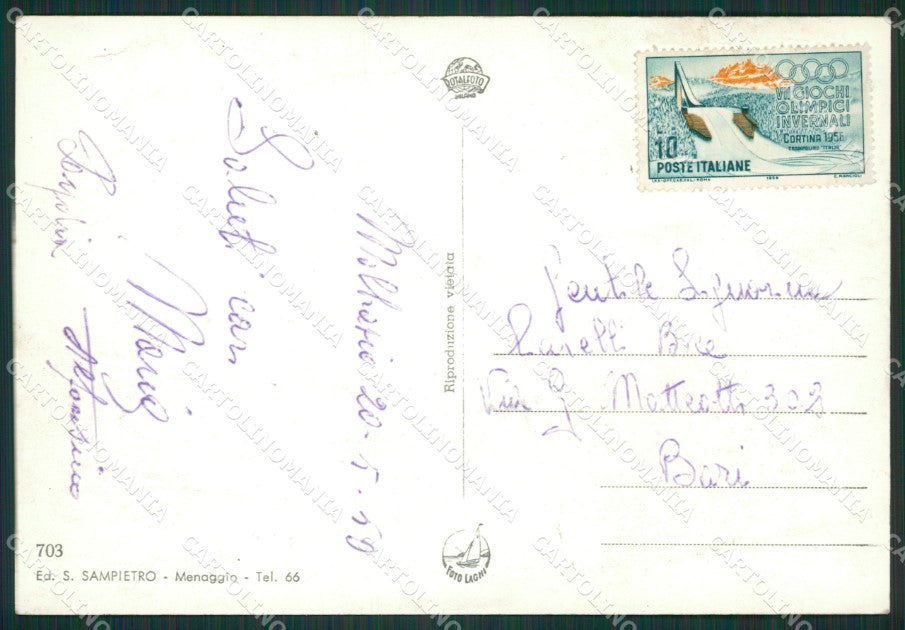 ROTALFOTO
MILANO
VII GIOCHI
OLIMPICI
INVERNALI
CORTINA 1956
TRAMPOLINO "ITALIA"
10
POSTE ITALIANE
1956
Saluti cari
Maria
20-5-
Riproduzione vietata
Gentile Signorina
Bice
Via G Matteotti 302
Bari
703
Ed. S. SAMPIETRO - Menaggio - Tel. 66
FOTO LAGHI
CARTOLINOMANIA